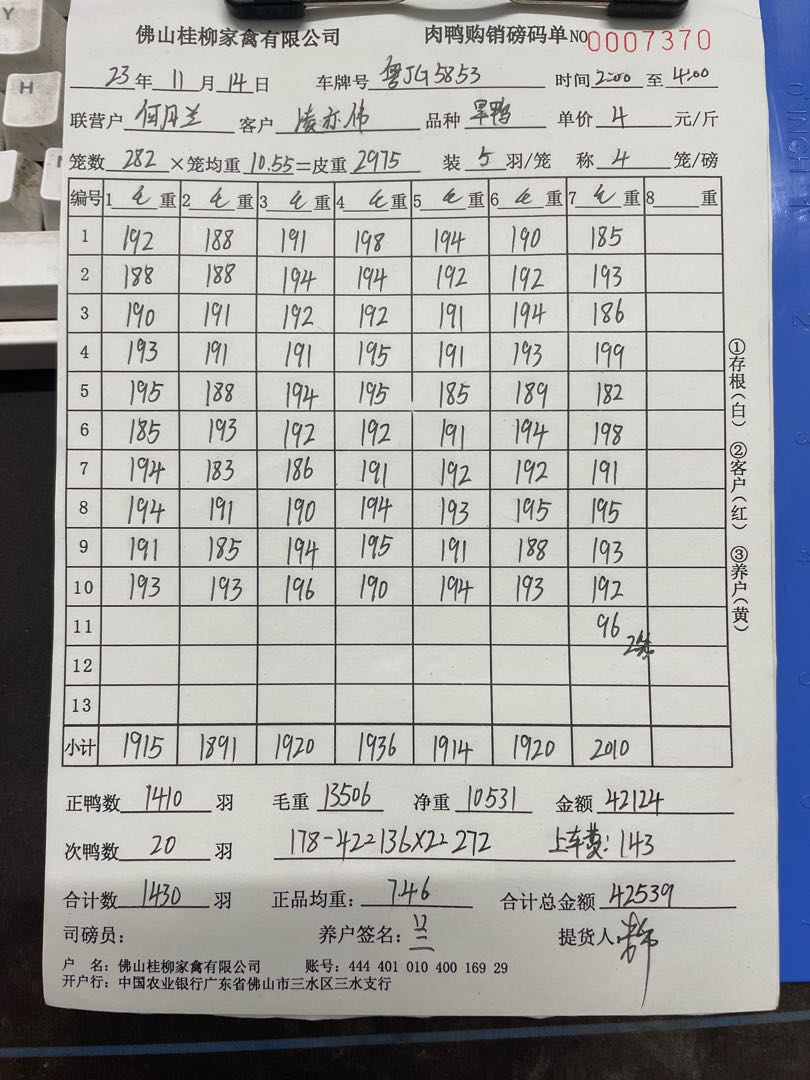 佛山桂柳家禽有限公司 肉鸭购销磅码单 NO 0007370
23年11月14日 车牌号 粤JG5853 时间2:00至4:00
联营户 何丹兰 客户 凌亦伟 品种 旱鸭 单价 4 元/斤
笼数 282 ×笼均重 10.55=皮重 2975 装 5 羽/笼 称 4 笼/磅
编号 1 毛 重 2 毛 重 3 毛 重 4 毛 重 5 毛 重 6 毛 重 7 毛 重 8 重
1 192 188 191 198 194 190 185
2 188 188 194 194 192 192 193
3 190 191 192 192 191 194 186
4 193 191 191 195 191 193 199
5 195 188 194 195 185 189 182
6 185 193 192 192 191 194 198
7 194 183 186 191 192 192 191
8 194 191 190 194 193 195 195
9 191 185 194 195 191 188 193
10 193 193 196 190 194 193 192
11 96 2笼
12
13
小计 1915 1891 1920 1936 1914 1920 2010
正鸭数 1410 羽 毛重 13506 净重 10531 金额 42124
次鸭数 20 羽 178-42=136×2=272 上车费:143
合计数 1430 羽 正品均重: 7.46 合计总金额 42539
司磅员: 养户签名: 兰 提货人
户 名: 佛山桂柳家禽有限公司 账号: 444 401 010 400 169 29
开户行: 中国农业银行广东省佛山市三水区三水支行
①存根(白) ②客户(红) ③养户(黄)
Y
H
0 INCH 1